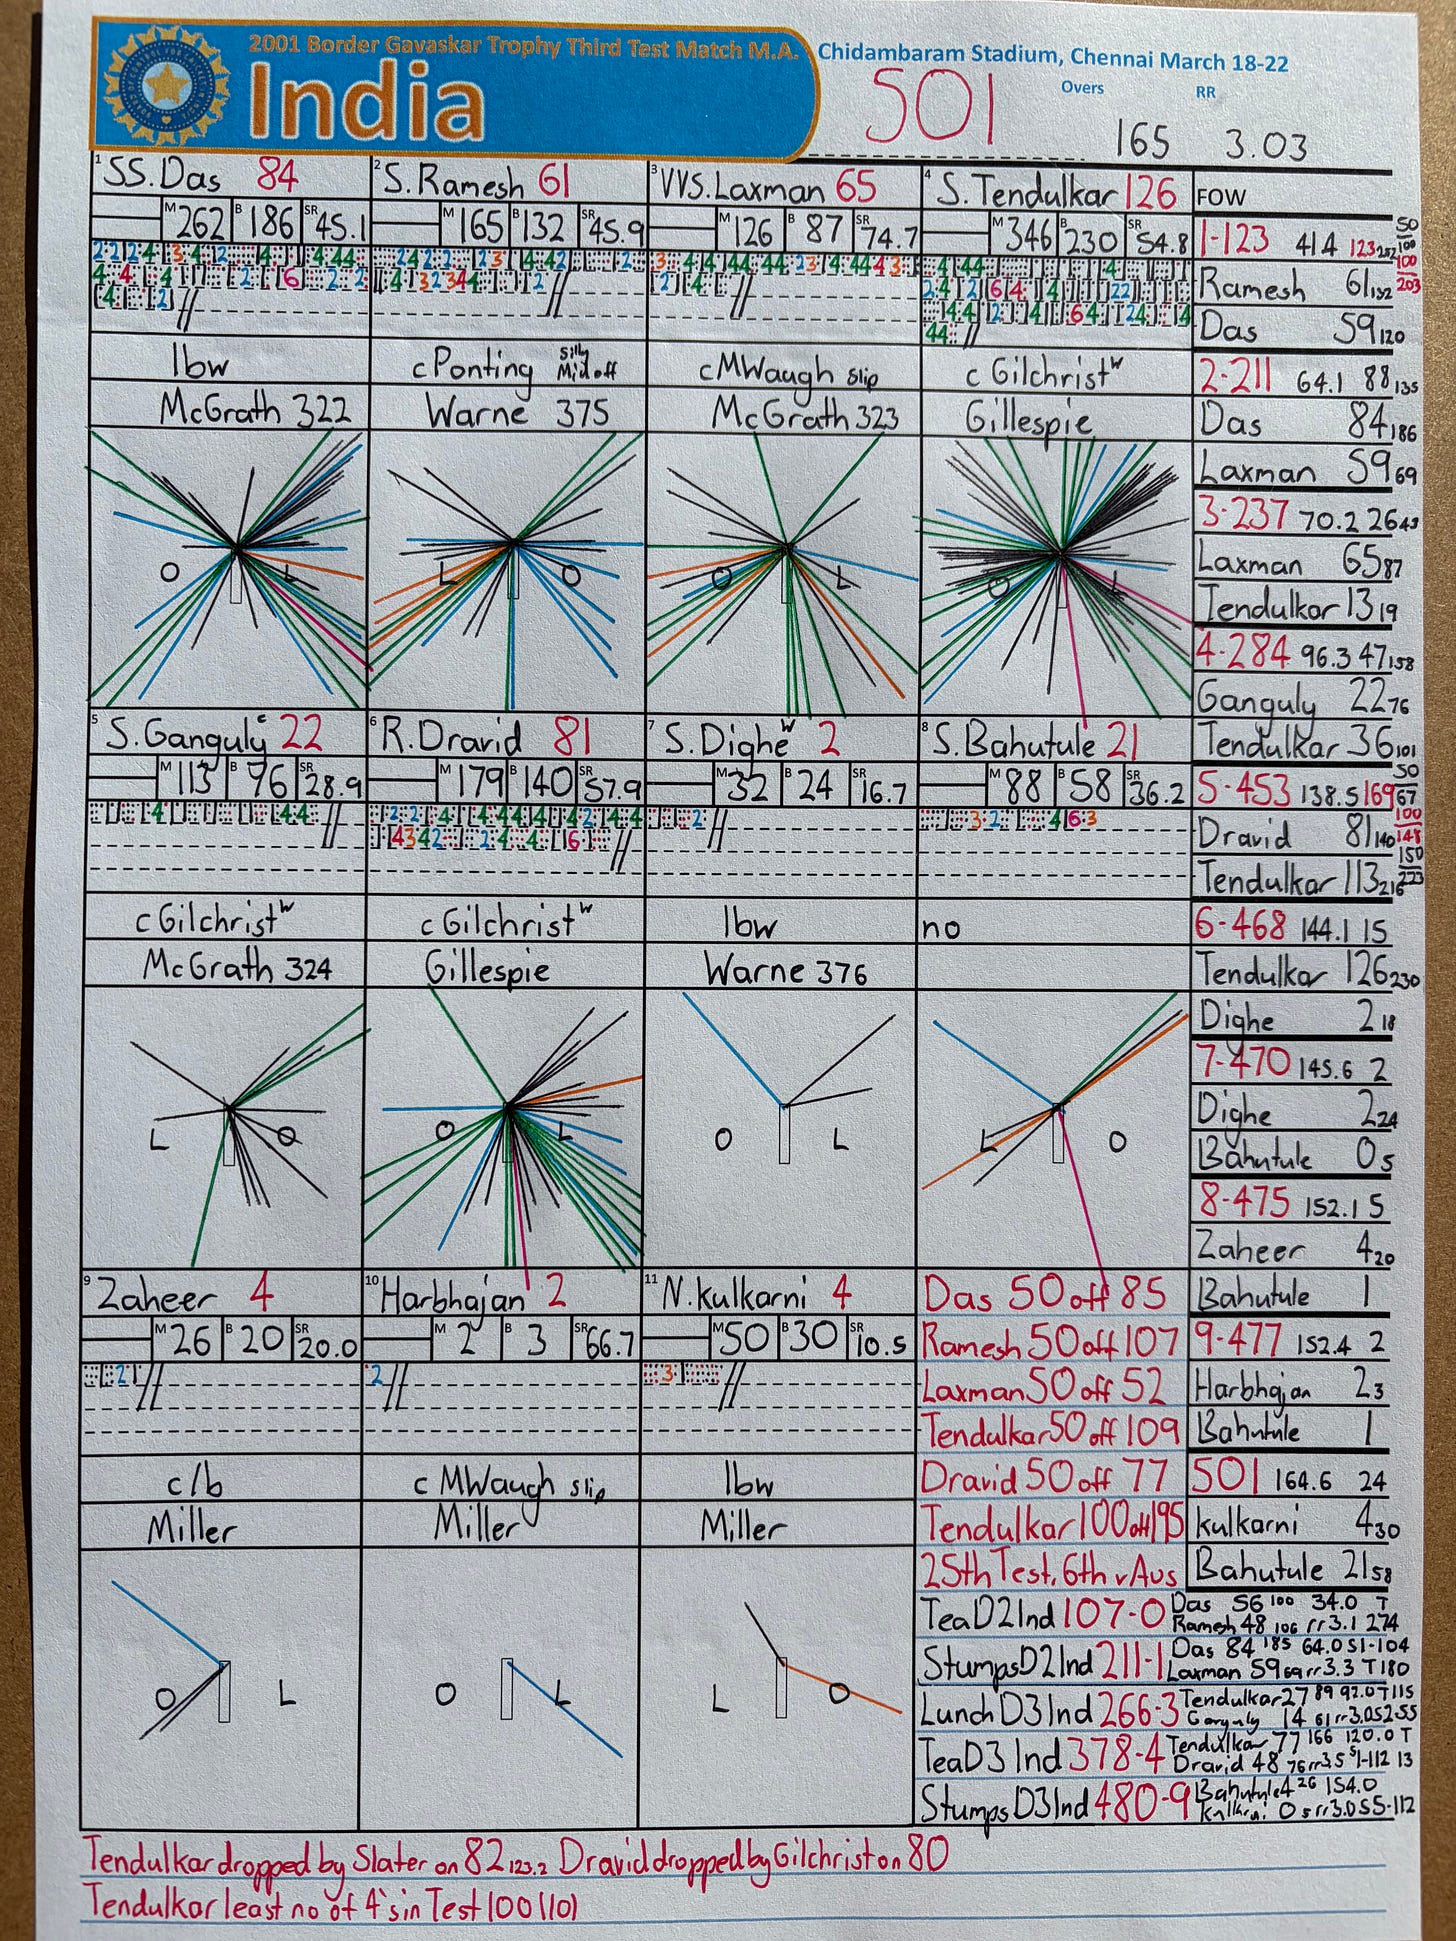 2001 Border Gavaskar Trophy Third Test Match M.A. Chidambaram Stadium, Chennai March 18-22
India
501
Overs
RR
165
3.03
1 SS.Das 84
M 262 B 186 SR 45.1
lbw
McGrath 322
2 S.Ramesh 61
M 165 B 132 SR 45.9
cPonting Silly Mid off
Warne 375
3 VVS.Laxman 65
M 126 B 87 SR 74.7
cMWaugh slip
McGrath 323
4 S.Tendulkar 126
M 346 B 230 SR 54.8
c Gilchrist w
Gillespie
O L
L O
O L
O L
5 S.Ganguly c 22
M 113 B 76 SR 28.9
cGilchrist w
McGrath 324
6 R.Dravid 81
M 179 B 140 SR 57.9
cGilchrist w
Gillespie
7 S.Dighe w 2
M 32 B 24 SR 16.7
lbw
Warne 376
8 S.Bahutule 21
M 88 B 58 SR 36.2
no
L O
O L
O L
L O
9 Zaheer 4
M 26 B 20 SR 20.0
c/b
Miller
10 Harbhajan 2
M 2 B 3 SR 66.7
c MWaugh slip
Miller
11 N.Kulkarni 4
M 50 B 30 SR 10.5
lbw
Miller
O L
O L
L O
Das 50 off 85
Ramesh 50 off 107
Laxman 50 off 52
Tendulkar 50 off 109
Dravid 50 off 77
Tendulkar 100 off 195
25th Test, 6th v Aus
Tea D2 Ind 107-0 Das 56 100 34.0 T
Ramesh 48 106 rr 3.1 274
Stumps D2 Ind 211-1 Das 84 185 64.0 S1-104
Laxman 59 69 rr 3.3 T180
Lunch D3 Ind 266-3 Tendulkar 27 89 92.0 T115
Ganguly 14 61 rr 3.0 S2-55
Tea D3 Ind 378-4 Tendulkar 77 166 120.0 T
Dravid 48 76 rr 3.5 S1-112 13
Stumps D3 Ind 480-9 Bahutule 4 26 154.0
Kulkarni 0 5 rr 3.0 S5-112
FOW
1-123 41.4 123 252
50
100
100
203
Ramesh 61 132
Das 59 120
2-211 64.1 88 135
Das 84 186
Laxman 59 69
3-237 70.2 26 43
Laxman 65 87
Tendulkar 13 19
4-284 96.3 47 158
Ganguly 22 76
Tendulkar 36 101
5-453 138.5 169
50
67
100
148
150
223
Dravid 81 140
Tendulkar 113 216
6-468 144.1 15
Tendulkar 126 230
Dighe 2 18
7-470 145.6 2
Dighe 2 24
Bahutule 0 5
8-475 152.1 5
Zaheer 4 20
Bahutule 1
9-477 152.4 2
Harbhajan 2 3
Bahutule 1
501 164.6 24
Kulkarni 4 30
Bahutule 21 58
Tendulkar dropped by Slater on 82 123.2 Dravid dropped by Gilchrist on 80
Tendulkar least no of 4's in Test 100 (10)